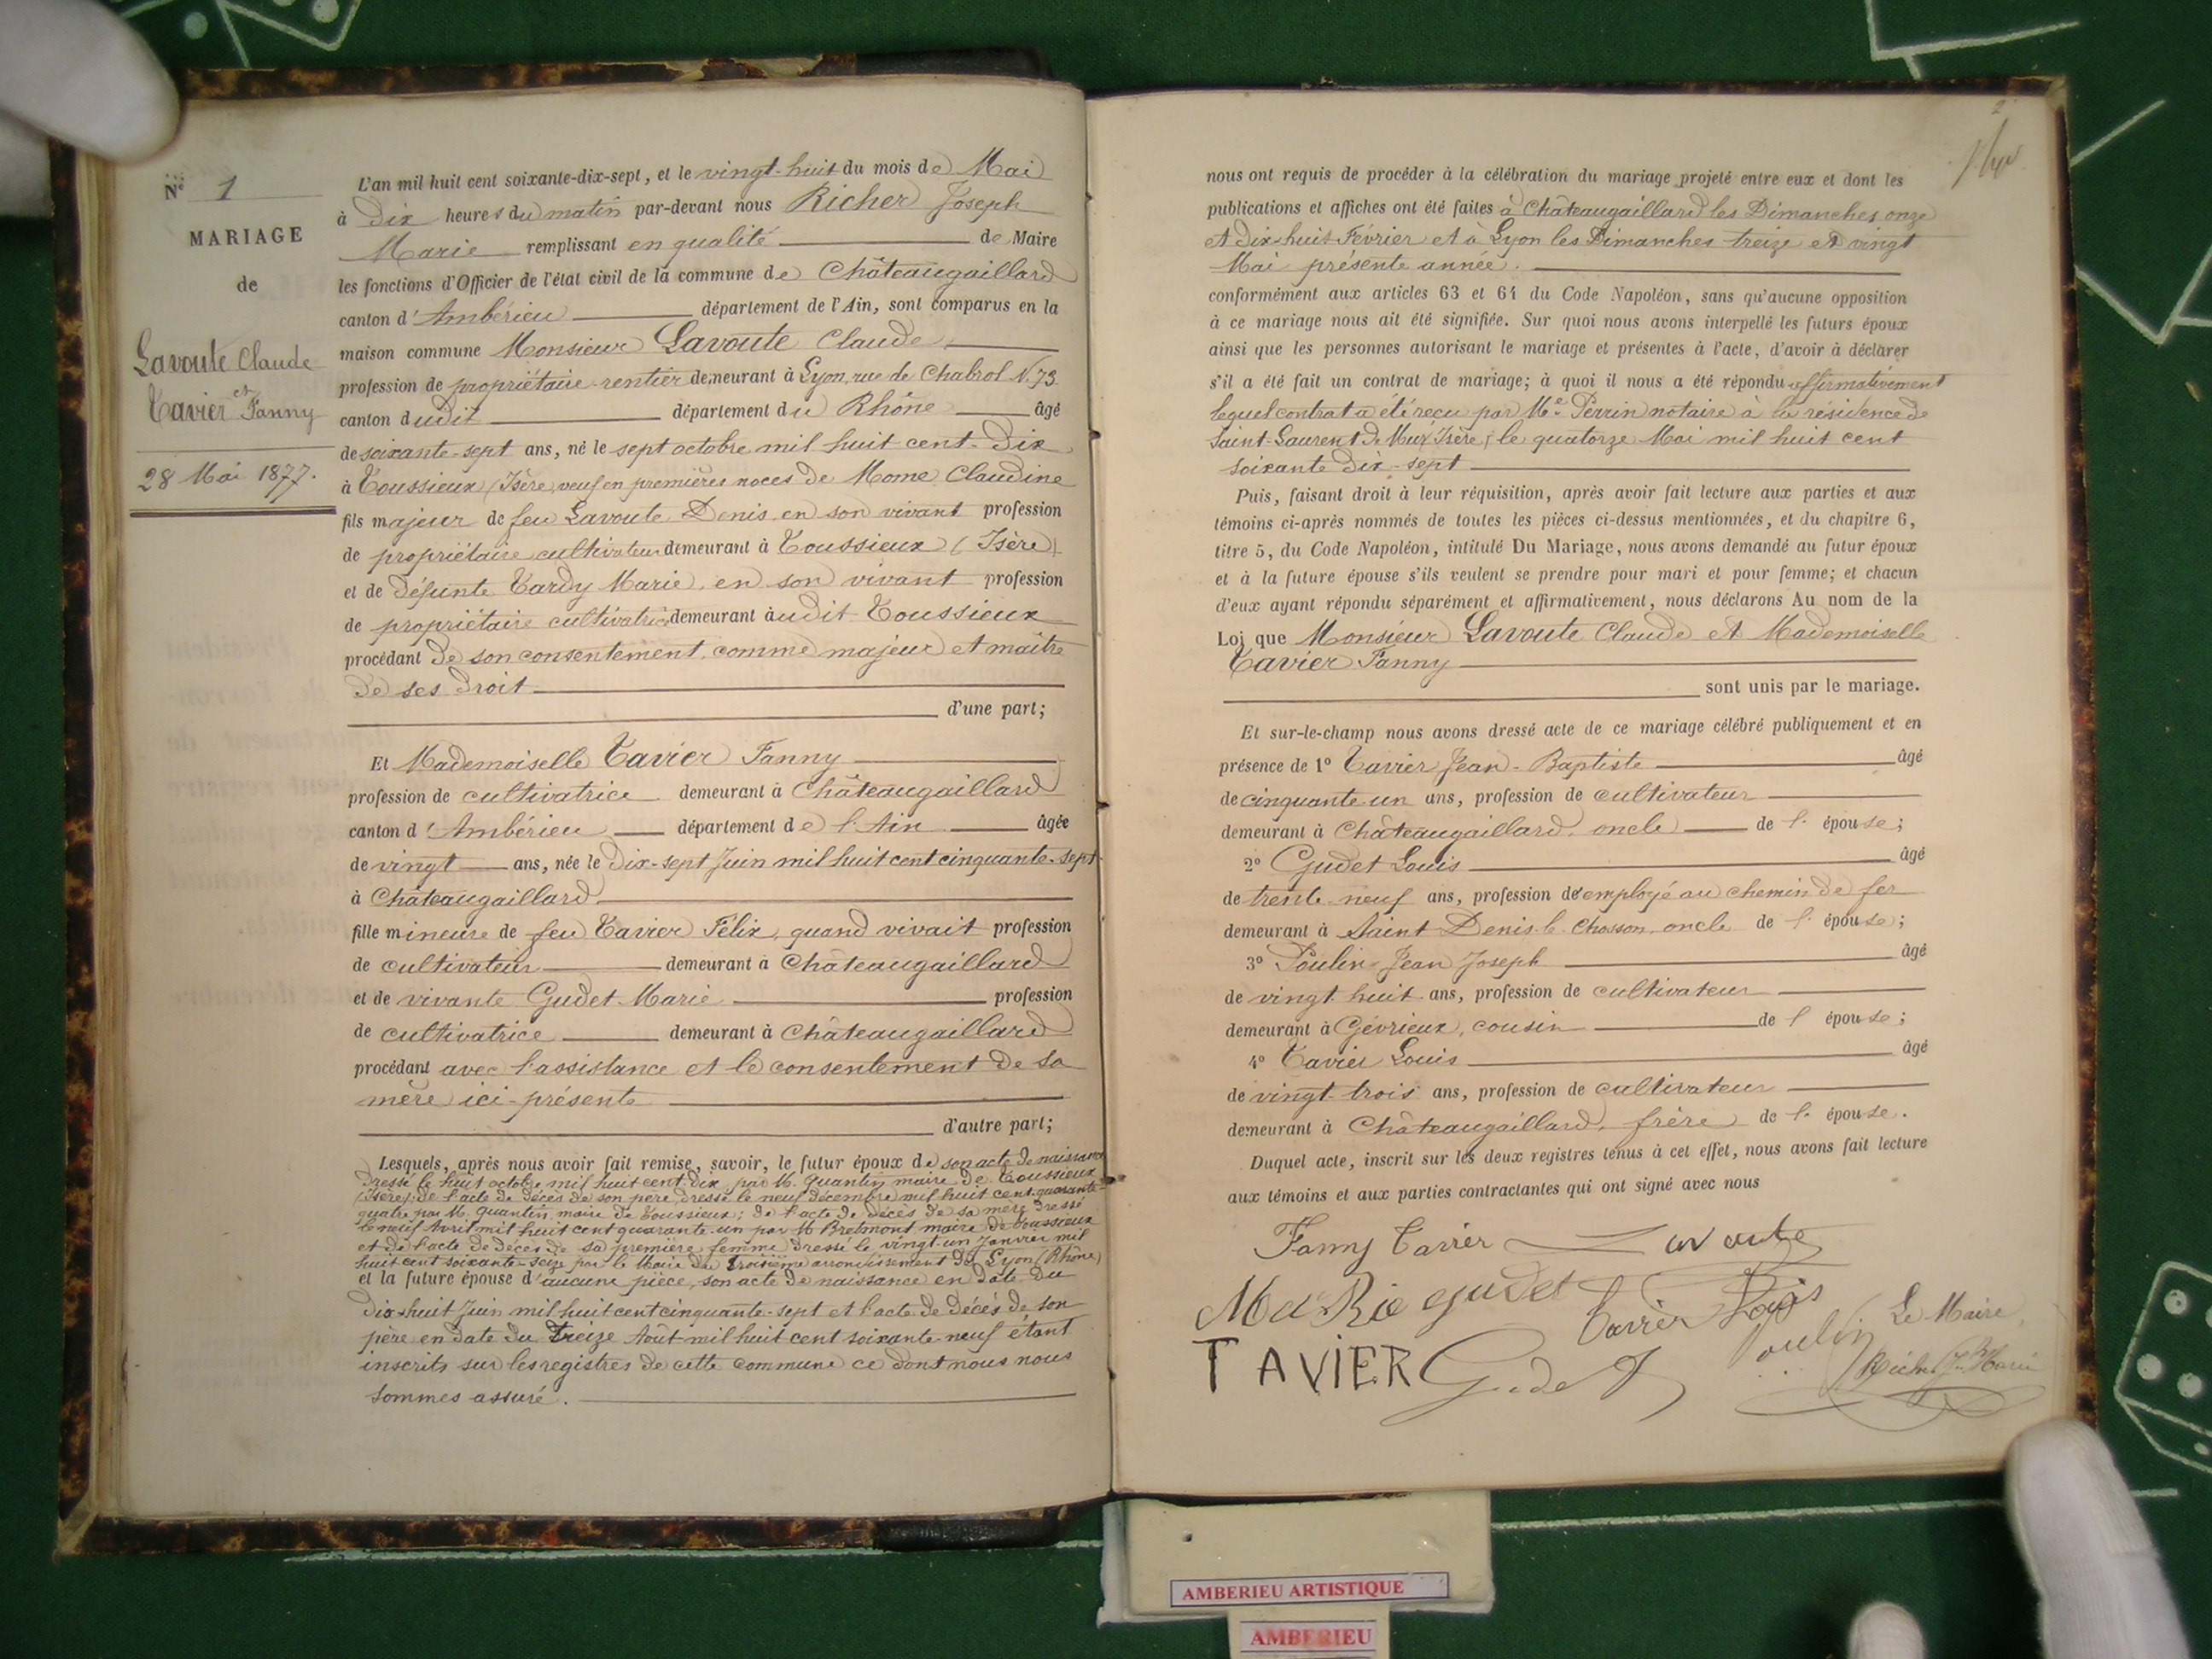 Nº 1
MARIAGE
de
Lavoute Claude
et
Tavier Fanny
28 Mai 1877.
L'an mil huit cent soixante-dix-sept, et le vingt-huit du mois de Mai
à Dix heures du matin par-devant nous Richer Joseph
Marie remplissant en qualité de Maire
les fonctions d'Officier de l'état civil de la commune de Châteaugaillard
canton d'Ambérieu département de l'Ain, sont comparus en la
maison commune Monsieur Lavoute Claude
profession de propriétaire-rentier demeurant à Lyon, rue de Chabrol N. 73
canton dudit département du Rhône âgé
de soixante-sept ans, né le sept octobre mil huit cent-dix
à Toussieux (Isère, veuf en premières noces de Mome Claudine
fils majeur de feu Lavoute Denis en son vivant profession
de propriétaire cultivateur demeurant à Toussieux (Isère)
et de défunte Tardy Marie, en son vivant profession
de propriétaire cultivatrice demeurant audit Toussieux
procédant de son consentement, comme majeur et maître
de ses droit
d'une part;
Et Mademoiselle Tavier Fanny
profession de cultivatrice demeurant à Châteaugaillard
canton d'Ambérieu département de l'Ain âgée
de vingt ans, née le Dix-sept Juin mil huit cent cinquante-sept
à Châteaugaillard
fille mineure de feu Tavier Félix, quand vivait profession
de cultivateur demeurant à Châteaugaillard
et de vivante Gudet Marie profession
de cultivatrice demeurant à Châteaugaillard
procédant avec l'assistance et le consentement de sa
mère ici-présente
d'autre part;
Lesquels, après nous avoir fait remise, savoir, le futur époux de son acte de naissance
dressé le huit octobre mil huit cent dix par M. Quantin maire de Toussieux
(Isère); de l'acte de décès de son père dressé le neuf décembre mil huit cent quarante-
quatre par M. Quantin maire de Toussieux; de l'acte de décès de sa mère dressé
le neuf Avril mil huit cent quarante-un par M Bretmont maire de Toussieux
et de l'acte de décès de sa première femme dressé le vingt-un Janvier mil
huit cent soixante-seize par le Maire du troisième arrondissement de Lyon (Rhône)
et la future épouse d'aucune pièce, son acte de naissance en date du
dix-huit Juin mil huit cent cinquante-sept et l'acte de décès de son
père en date du treize Août mil huit cent soixante neuf étant
inscrits sur les registres de cette commune ce dont nous nous
sommes assuré.
2
nous ont requis de procéder à la célébration du mariage projeté entre eux et dont les
publications et affiches ont été faites à Châteaugaillard les Dimanches onze
et dix-huit Février et à Lyon les Dimanches treize et vingt
Mai présente année.
conformément aux articles 63 et 64 du Code Napoléon, sans qu'aucune opposition
à ce mariage nous ait été signifiée. Sur quoi nous avons interpellé les futurs époux
ainsi que les personnes autorisant le mariage et présentes à l'acte, d'avoir à déclarer
s'il a été fait un contrat de mariage; à quoi il nous a été répondu affirmativement
lequel contrat a été reçu par Me Perrin notaire à la résidence de
Saint-Laurent de Mure, Isère, le quatorze Mai mil huit cent
soixante dix-sept
Puis, faisant droit à leur réquisition, après avoir fait lecture aux parties et aux
témoins ci-après nommés de toutes les pièces ci-dessus mentionnées, et du chapitre 6,
titre 5, du Code Napoléon, intitulé Du Mariage, nous avons demandé au futur époux
et à la future épouse s'ils veulent se prendre pour mari et pour femme; et chacun
d'eux ayant répondu séparément et affirmativement, nous déclarons Au nom de la
Loi que Monsieur Lavoute Claude et Mademoiselle
Tavier Fanny
sont unis par le mariage.
Et sur-le-champ nous avons dressé acte de ce mariage célébré publiquement et en
présence de 1º Tavier Jean-Baptiste âgé
de cinquante-un ans, profession de cultivateur
demeurant à Châteaugaillard, oncle de l' épouse;
2º Gudet Louis âgé
de trente-neuf ans, profession d'employé au chemin de fer
demeurant à Saint Denis-le Chosson, oncle de l' épouse;
3º Poulin Jean Joseph âgé
de vingt-huit ans, profession de cultivateur
demeurant à Gévrieux, cousin de l' épouse;
4º Tavier Louis âgé
de vingt-trois ans, profession de cultivateur
demeurant à Châteaugaillard, frère de l' épouse.
Duquel acte, inscrit sur les deux registres tenus à cet effet, nous avons fait lecture
aux témoins et aux parties contractantes qui ont signé avec nous
Fanny Tavier Lavoute
MaRie gudet Tavier Louis
Poulin Le Maire,
TAVIER Gudet Richer Jh Marie
AMBERIEU ARTISTIQUE
AMBERIEU